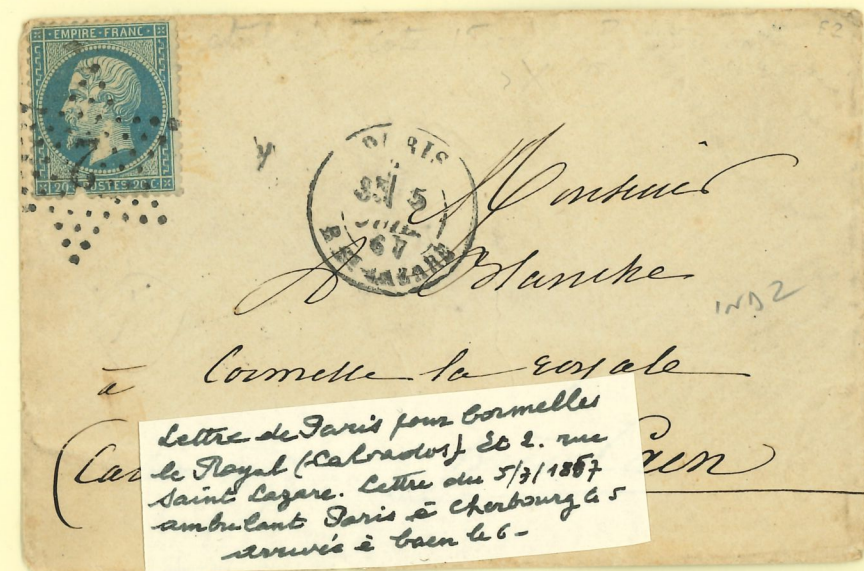 EMPIRE FRANC
20 C POSTES 20 C
2
PARIS
5
67
R. ST LAZARE
Monsieur
Blanche
IND 2
à Cormelle la royale
Caen
Lettre de Paris pour Cormelles
le Royal (Calvados) Et 2. rue
Saint Lazare. Lettre du 5/7/1867
ambulant Paris à Cherbourg le 5
arrivée à Caen le 6-